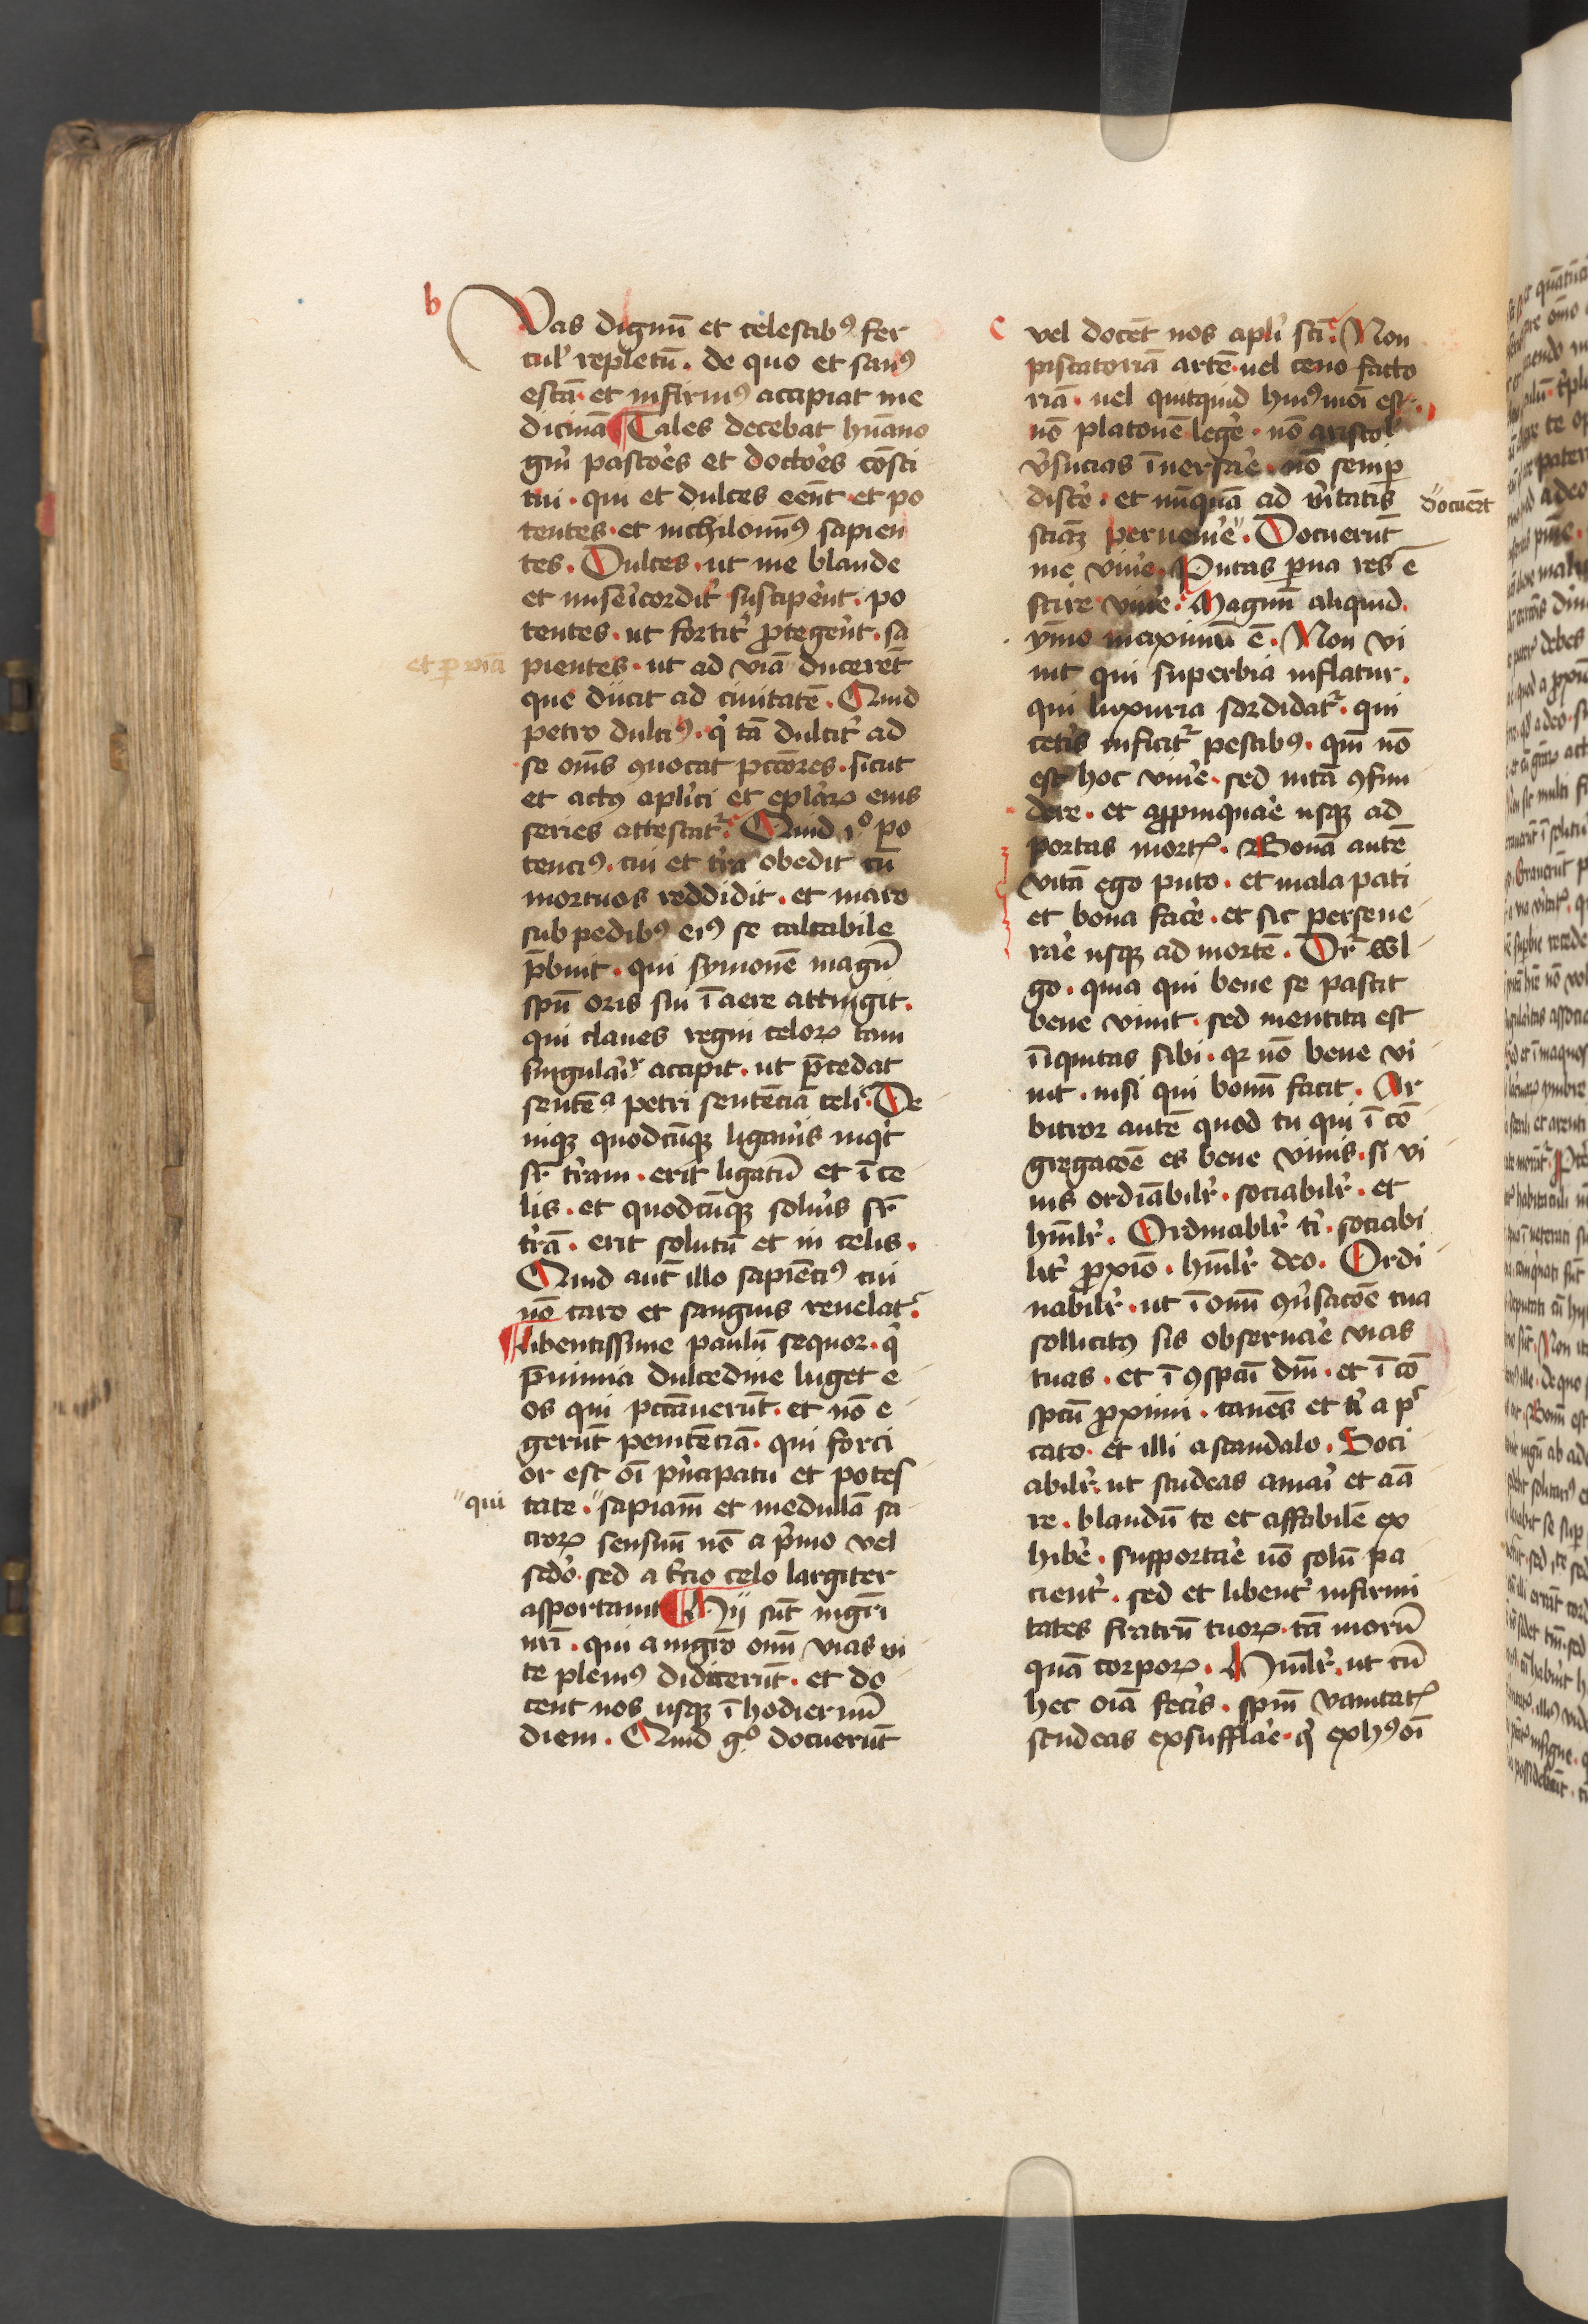 b
Vas dignū et celestibꝰ fer
cul' repletū. de quo et sanꝰ
escā et infirmꝰ accipiat me
dicinā Tales decebat hūano
gn̄i pasto'es et docto'es cōsti
tui. qui et dulces eēnt et po
tentes. et nichilomīꝰ sapien
tes. Dulces. ut me blande
et mise'icordit' suscipe'nt. po
tentes. ut fortit' ꝓtege'nt. sa
et ꝑ viā
pientes. ut ad viā ducerēt
que dūcit ad ciuitatē. Quid
petro dulciꝰ. q' tā dulcit' ad
se om̄s ꝯuocat pctōres. sicut
et actꝯ apl'ici et epl'arꝝ eius
series attestat'. Quid ꝟ° po
tenciꝰ. cui et t'ra obedit cū
mortuos reddidit. et mare
sub pedibꝰ eiꝰ se calcabile
p̄buit. qui symonē magū
spū oris sui ī aere attingit.
qui claues regni celorꝝ tam
singula'r' accipit. ut p̄cedat
sentēᵃ petri sentēciā celi. De
niqꝫ quodcūqꝫ ligau'is inqt'
sr̄ t'ram. erit ligatū et ī ce
lis. et quodcūqꝫ solu'is sr̄
t'rā. erit solutū et in celis.
Quid aut̄ illo sapiēciꝰ cui
nō caro et sanguis reuelat'.
libentissime paulū sequor. q'
p̄nimia dulcedine luget e
os qui pctāuerūt. et nō e
gerūt penitēciā. qui forci
or est oī p'ncipatu et potes
"qui
tate. "sapiam̄ et medullā sa
crorꝝ sensuū nō a p'mo vel
sc̄do. sed a t'cio celo largiter
asportauit Hij sūt mgr̄i
nr̄i. qui a mgr̄o om̄ vias vi
te pleniꝰ didicerūt. et do
cent nos usqꝫ ī hodiernū
diem. Quid gº docuerūt
c
vel docēt nos apl'i sc̄i. Non
piscatoriā artē. uel ceno facto
riā. uel quitquid huiꝰmōi est.
nō platonē lege'. nō aristol'
v'sucias īuersa'e. nō semꝑ
disce'. et nūquā ad v'itatis
docuer̄t
sciāꝫ peruenie'". Docuerūt
me viue'. Putas ꝑua res ē
scire viue'. Magnū aliquid.
ymo maximū ē. Non vi
uit qui superbia inflatur.
qui luxuria sordidat'. qui
cete'is inficit' pestibꝰ. qm̄ nō
est hoc viue'. sed uitā ꝯfun
dere. et aꝓpinqua'e usqꝫ ad
portas mortꝭ. Bonā autē
vitā ego puto. et mala pati
et bona face'. et sic perseue
ra'e usqꝫ ad mortē. Dr̄ wl
go. quia qui bene se pascit
bene viuit. sed mentita est
īiquitas sibi. qꝛ nō bene vi
uit. nisi qui bonū facit. Ar
bitror autē quod tu qui ī cō
gregacōe es bene viuis. si vi
uis ordīabilr'. sociabilr'. et
hūilr'. Ordinablr' t'. sociabi
lit' ꝓxīo. hūilr' deo. Ordi
nabilr'. ut ī omī ꝯu'sacōe tua
sollicitꝰ sis obserua'e vias
tuas. et ī ꝯspcū dn̄i. et ī cō
spcū ꝓximi. cauēs et t' a pc'
cato. et illi a scandalo. Soci
abilr'. ut studeas ama'i et aā
re. blandū te et affabilē ex
hibe'. supporta'e nō solū pa
cient'. sed et libent' infirmi
tates fratrū tuorꝝ. tā morū
quā corporꝝ. Hūilr'. ut cū
hec oīa fece'is. spm̄ vanitatꝭ
studeas exsuffla'e. q' ex hꝰ oī